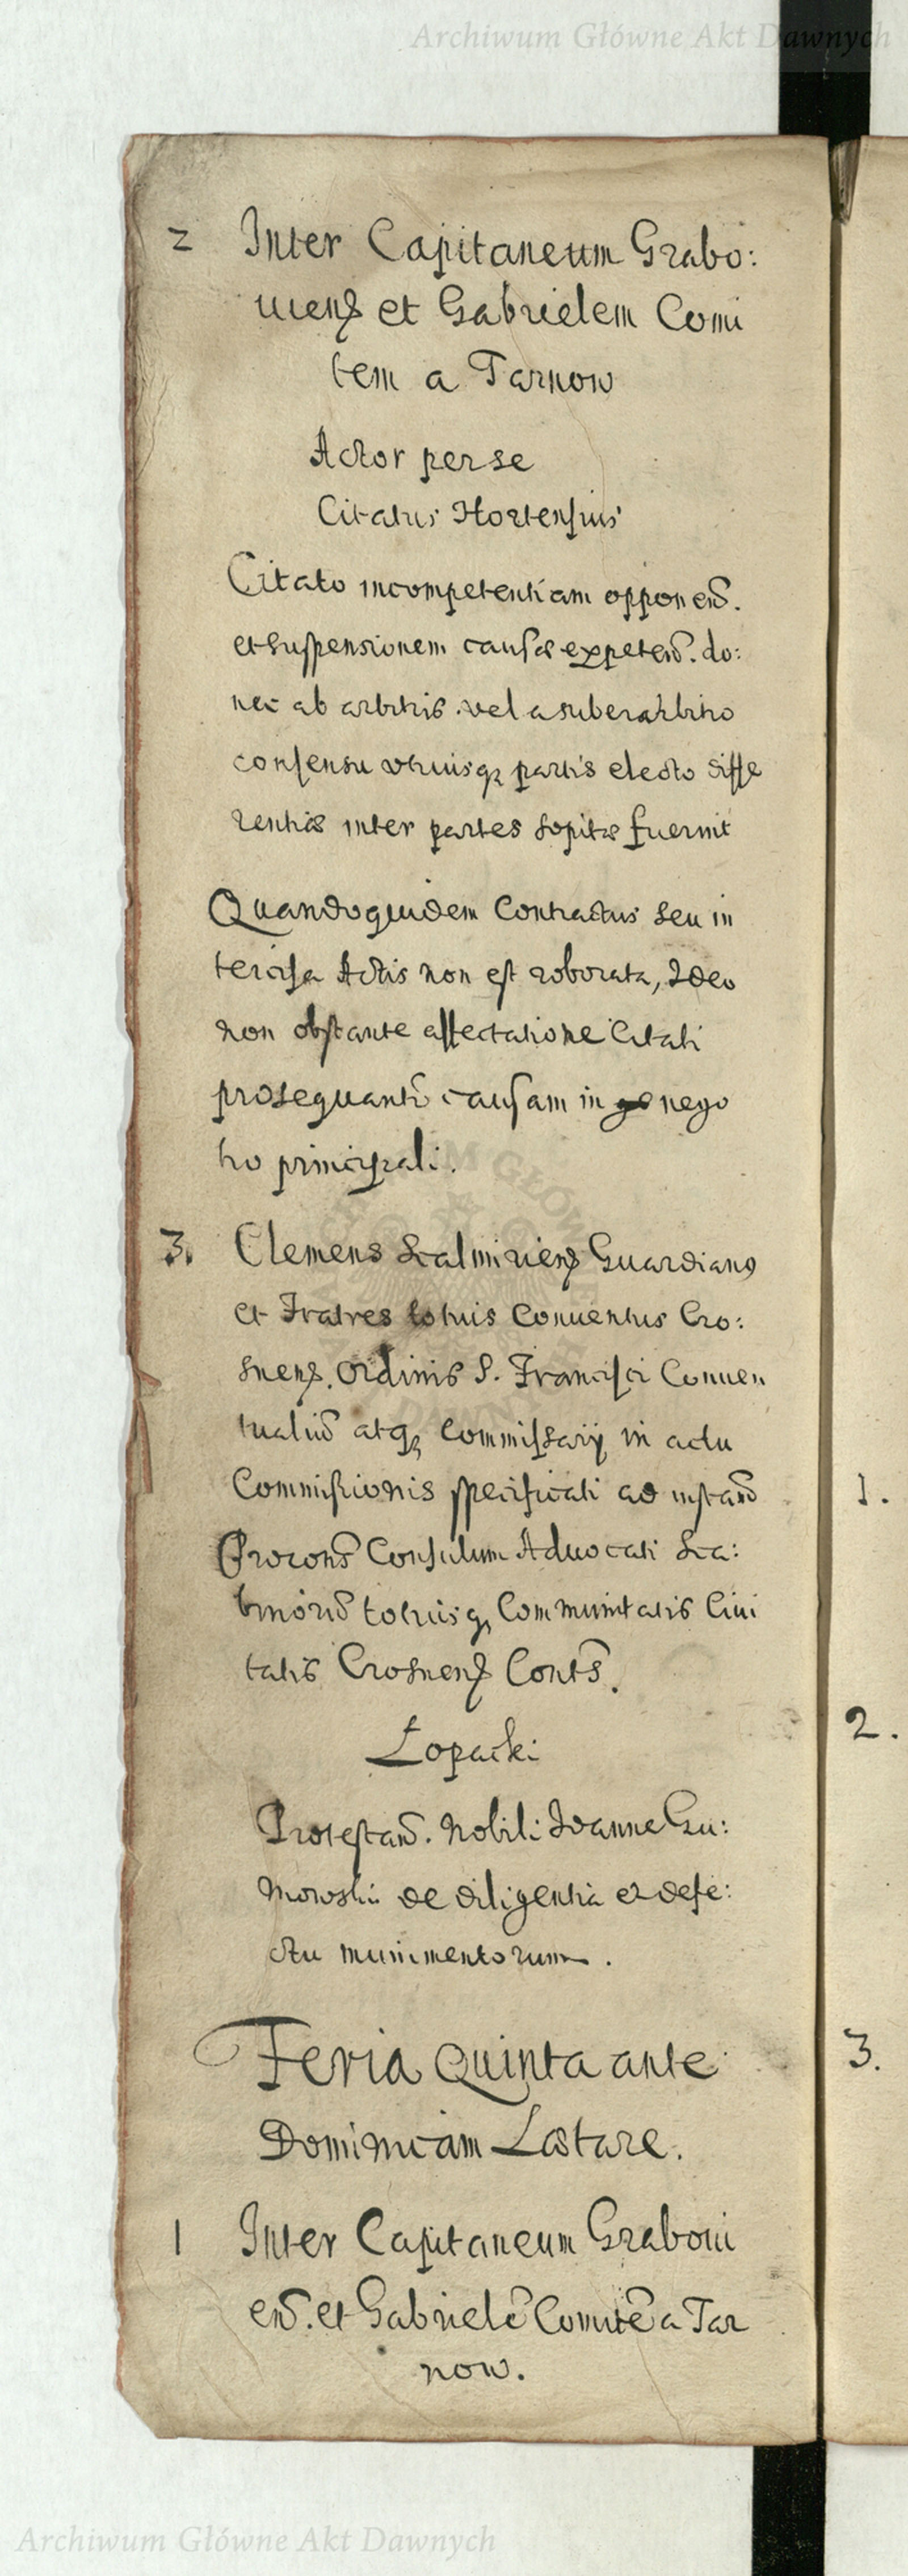 Archiwum Główne Akt Dawnych
2 Inter Capitaneum Grabo:
uiens et Gabrielem Comi
tem a Tarnow
Actor per se
Citatus Hortensius
Citato incompetentiam opponen.
et suspensionem causæ expeten. do:
nec ab arbitris vel a suberarbitro
consensu vtriusq partis electo diffe
rentiæ inter partes sopitæ fuerint
Quandoquidem Contractus seu in
tercisa Actis non est roborata, Ideo
non obstante affectatione Citati
prosequantr causam in nego
tio principali.
3. Clemens Guardianus
et Fratres totius Conuentus Cro:
snens. Ordinis S. Francisci Conuen
tualiu atq Commissarij in actu
Commissionis specificati ad instan
Procons Consulum Aduocati Sca:
binoru totiusq Communitatis Ciui
tatis Crosnens Conts.
Łopacki
Protestan. Nobili Ioanne Gu:
mowski de diligentia et defe:
ctu munimentorum.
Feria Quinta ante
Dominicam Lætare.
1 Inter Capitaneum Graboui
en. et Gabriele Comite a Tar
now.
1.
2.
3.
Archiwum Główne Akt Dawnych